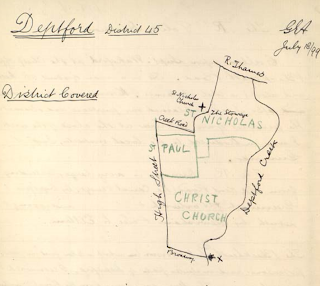 Deptford District 45
GEA
July 18/99
District Covered
R. Thames
St Nicholas
Church
The Stowage
ST
NICHOLAS
Creek Road
ST PAUL
High Street
Deptford Creek
CHRIST
CHURCH
Broadway